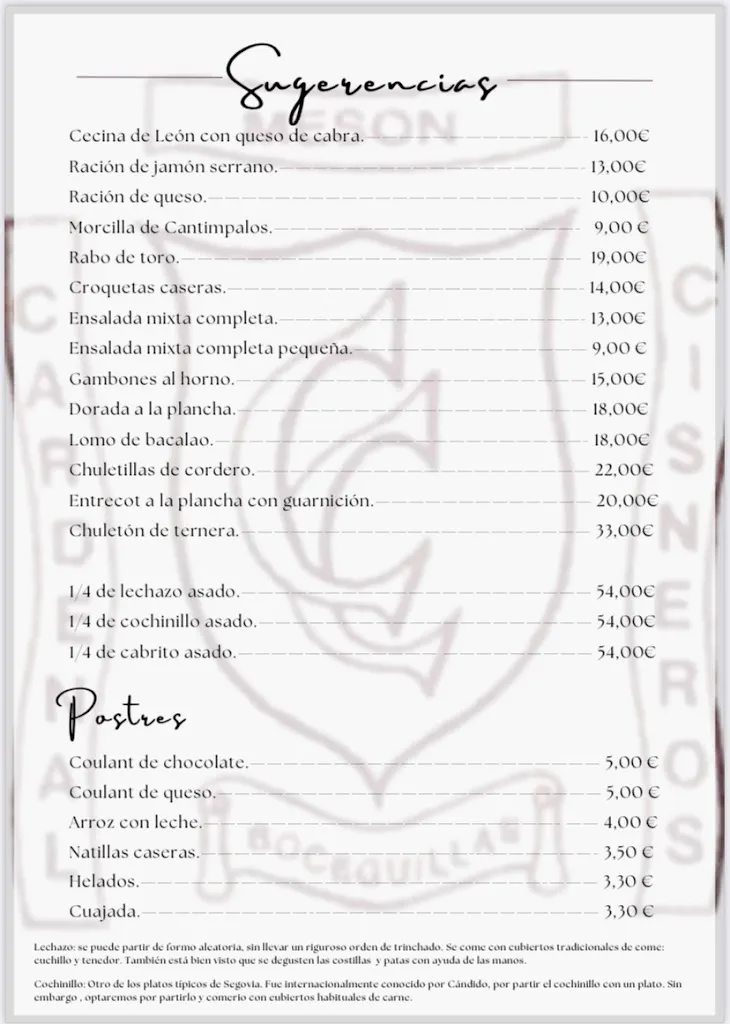 Sugerencias
MESON
Cecina de León con queso de cabra. 16,00€
Ración de jamón serrano. 13,00€
Ración de queso. 10,00€
Morcilla de Cantimpalos. 9,00 €
Rabo de toro. 19,00€
Croquetas caseras. 14,00€
Ensalada mixta completa. 13,00€
Ensalada mixta completa pequeña. 9,00 €
Gambones al horno. 15,00€
Dorada a la plancha. 18,00€
Lomo de bacalao. 18,00€
Chuletillas de cordero. 22,00€
Entrecot a la plancha con guarnición. 20,00€
Chuletón de ternera. 33,00€
1/4 de lechazo asado. 54,00€
1/4 de cochinillo asado. 54,00€
1/4 de cabrito asado. 54,00€
CARDENAL
CISNEROS
Postres
Coulant de chocolate. 5,00 €
Coulant de queso. 5,00 €
Arroz con leche. 4,00 €
Natillas caseras. 3,50 €
Helados. 3,30 €
Cuajada. 3,30 €
BOCEGUILLAS
Lechazo: se puede partir de formo aleatoria, sin llevar un riguroso orden de trinchado. Se come con cubiertos tradicionales de come:
cuchillo y tenedor. También está bien visto que se degusten las costillas y patas con ayuda de las manos.
Cochinillo: Otro de los platos típicos de Segovia. Fue internacionalmente conocido por Cándido, por partir el cochinillo con un plato. Sin
embargo , optaremos por partirlo y comerio con cubiertos habituales de carne.